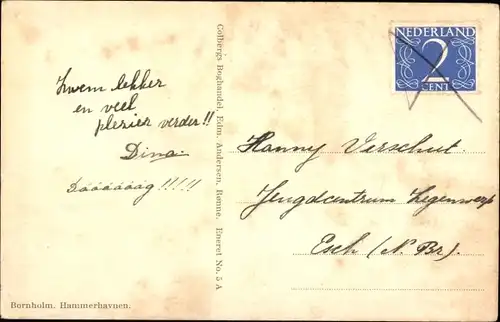 NEDERLAND
2
CENT
Zwem lekker
en veel
plezier verder!!
Dina.
Dáááááág!!!!
Colbergs Boghandel, Edm. Andersen, Rønne. Eneret No. 5 A
Hanny Verschut.
Jeugdcentrum Zegenwerp
Esch (N. Br).
Bornholm. Hammerhavnen.